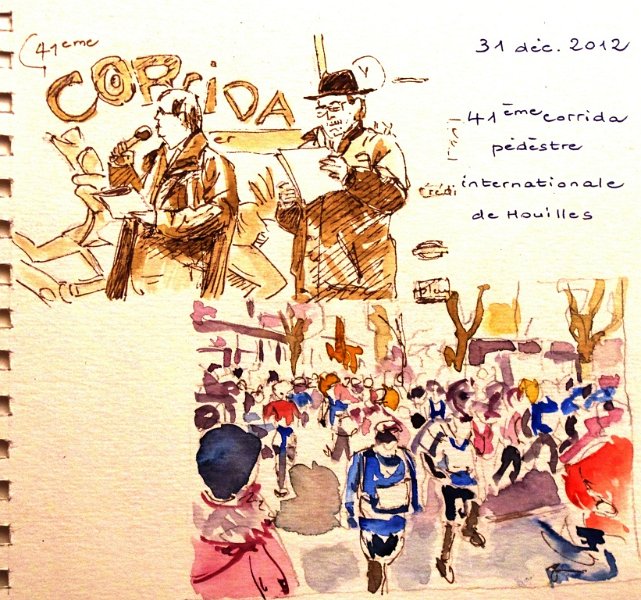 41eme
CORRIDA
31 déc. 2012
41ème corrida
pédèstre
internationale
de Houilles
crédi